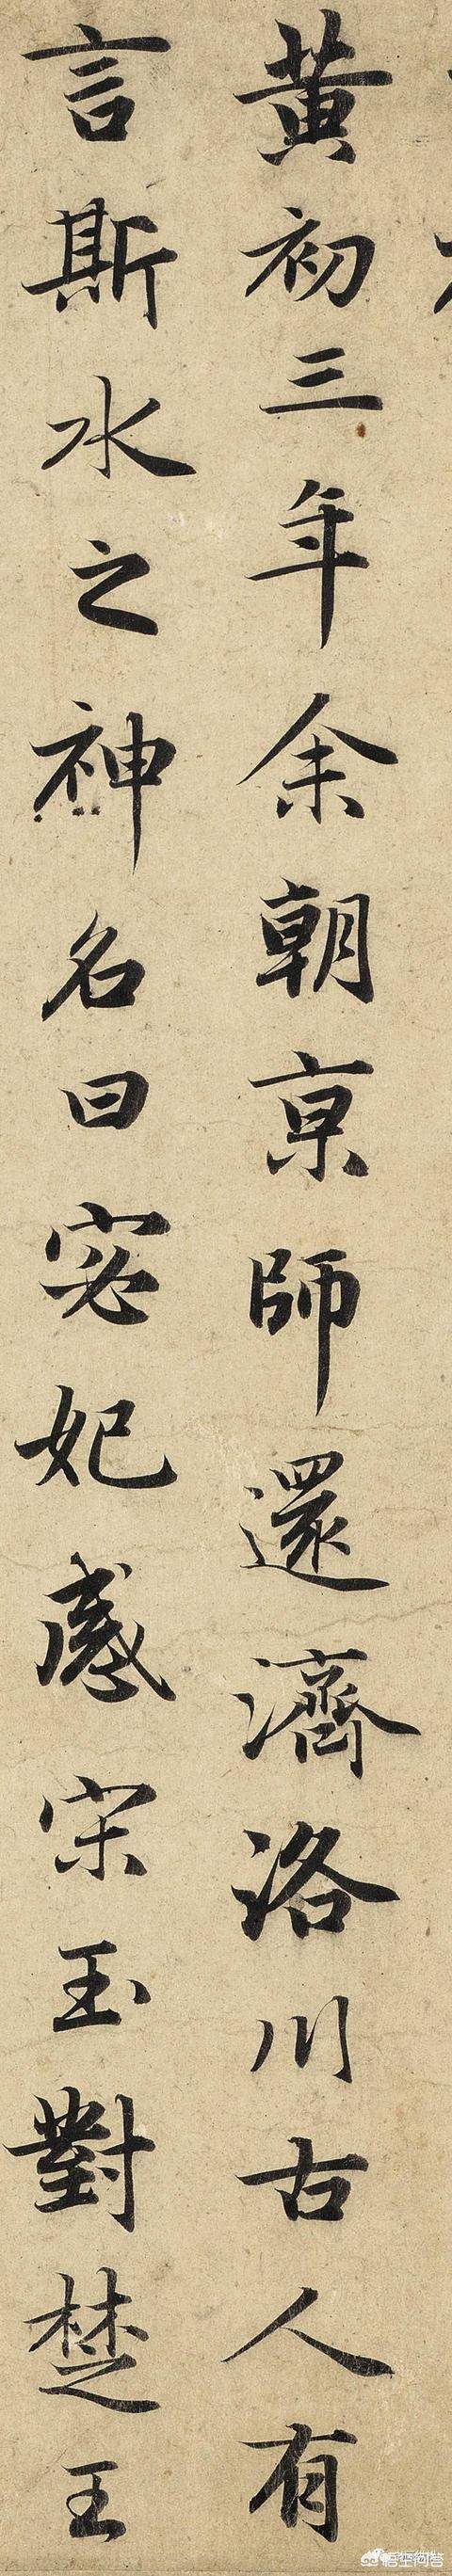 黄初三年余朝京師還濟洛川古人有
言斯水之神名曰宓妃感宋玉對楚王
悟空问答